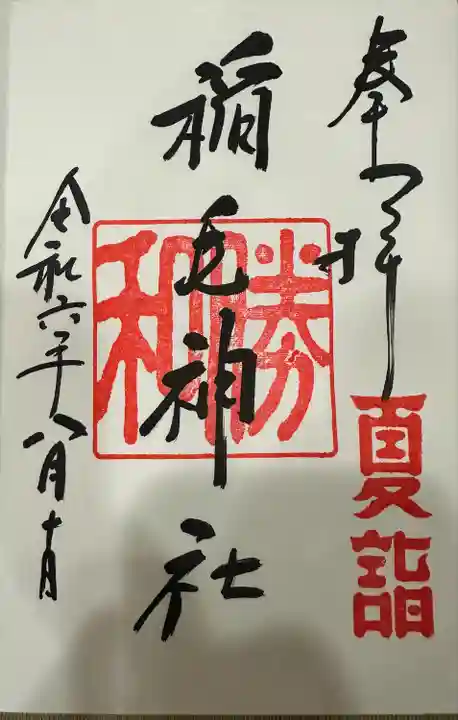 奉拝
夏詣
稲毛神社
勝和
令和六年八月十日